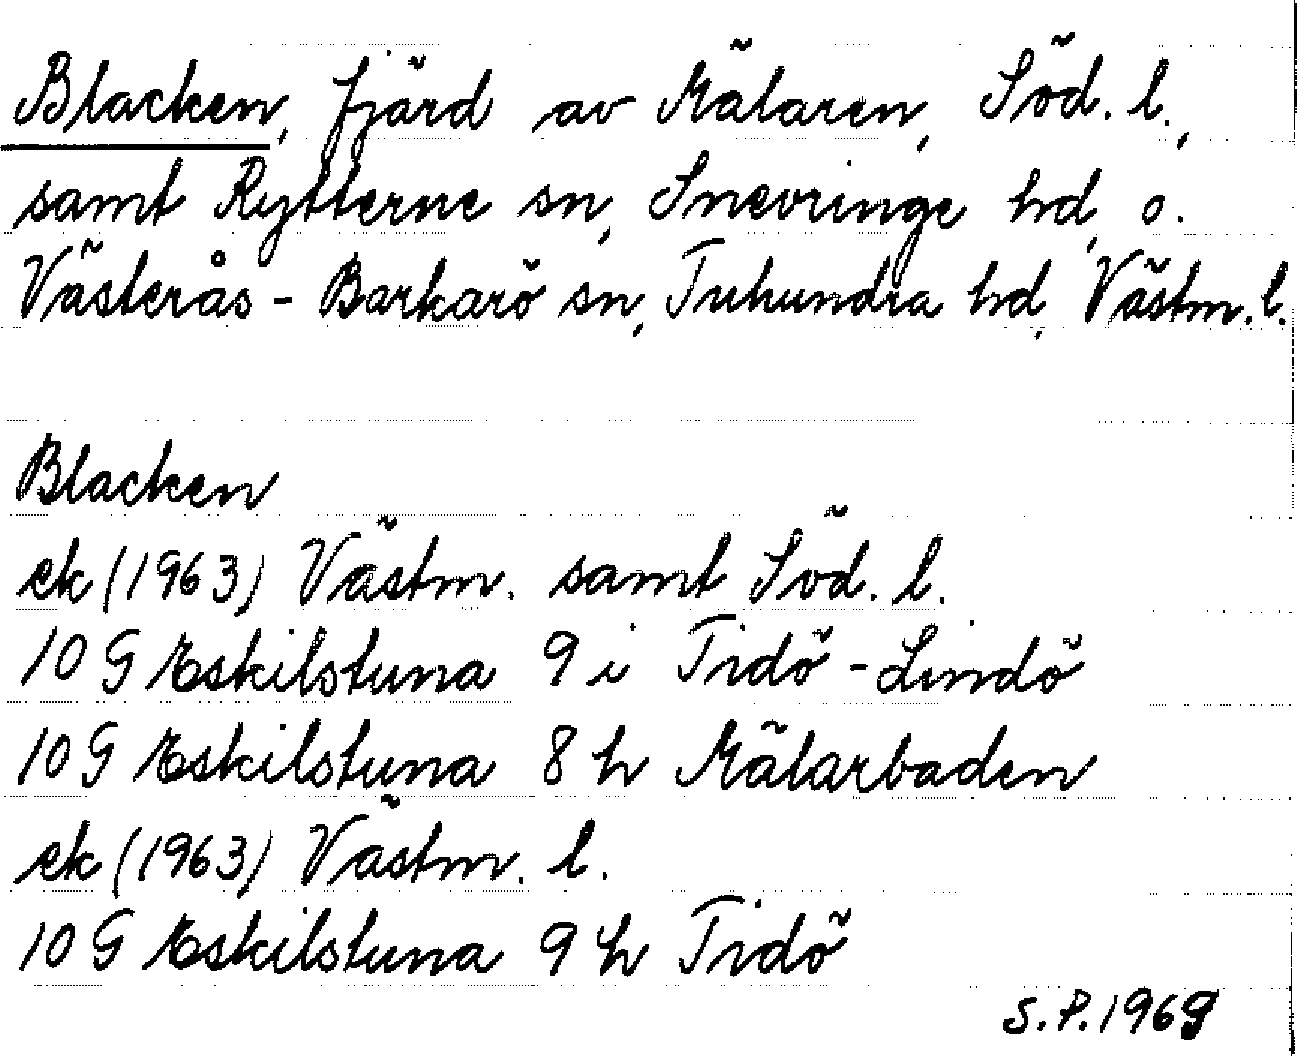 Blacken, fjärd av Mälaren, Söd. l.,
samt Rytterne sn, Snevringe hd, o.
Västerås-Barkarö sn, Tuhundra hd, Västm. l.
Blacken
ek (1963) Västm. samt Söd. l.
10 G Eskilstuna 9 i Tidö-Lindö
10 G Eskilstuna 8 h Mälarbaden
ek (1963) Västm. l.
10 G Eskilstuna 9 h Tidö
S.P. 1969